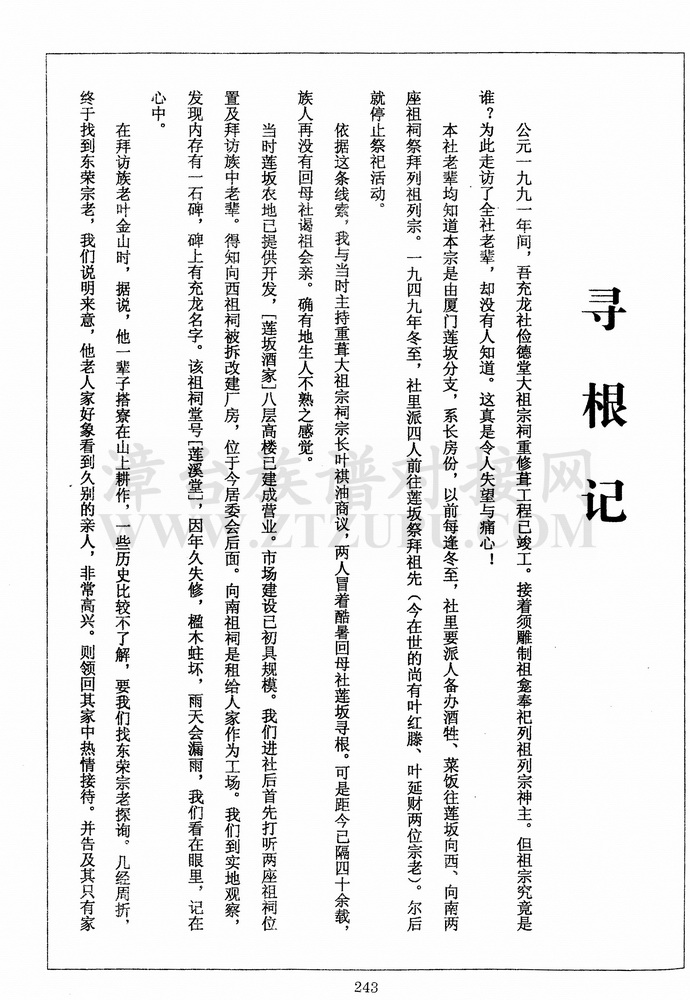 寻根记
公元一九九一年间，吾充龙社俭德堂大祖宗祠重修葺工程已竣工。接着须雕制祖龛奉祀列祖列宗神主。但祖宗究竟是
谁？为此走访了全社老辈，却没有人知道。这真是令人失望与痛心！
本社老辈均知道本宗是由厦门莲坂分支，系长房份，以前每逢冬至，社里要派人备办酒牲、菜饭往莲坂向西、向南两
座祖祠祭拜列祖列宗。一九四九年冬至，社里派四人前往莲坂祭拜祖先（今在世的尚有叶红滕、叶延财两位宗老）。尔后
就停止祭祀活动。
依据这条线索，我与当时主持重葺大祖宗祠宗长叶祺油商议，两人冒着酷暑回母社莲坂寻根。可是距今已隔四十余载，
族人再没有回母社谒祖会亲。确有地生人不熟之感觉。
当时莲坂农地已提供开发，［莲坂酒家］八层高楼已建成营业。市场建设已初具规模。我们进社后首先打听两座祖祠位
置及拜访族中老辈。得知向西祖祠被拆改建厂房，位于今居委会后面。向南祖祠是租给人家作为工场。我们到实地观察，
发现内存有一石碑，碑上有充龙名字。该祖祠堂号［莲溪堂］，因年久失修，楹木蛀坏，雨天会漏雨，我们看在眼里，记在
心中。
在拜访族老叶金山时，据说，他一辈子搭寮在山上耕作，一些历史比较不了解，要我们找东荣宗老探询。几经周折，
终于找到东荣宗老，我们说明来意，他老人家好象看到久别的亲人，非常高兴。则领回其家中热情接待。并告及其只有家
243
漳台族谱对接网
WWW.ZTZUPU.COM